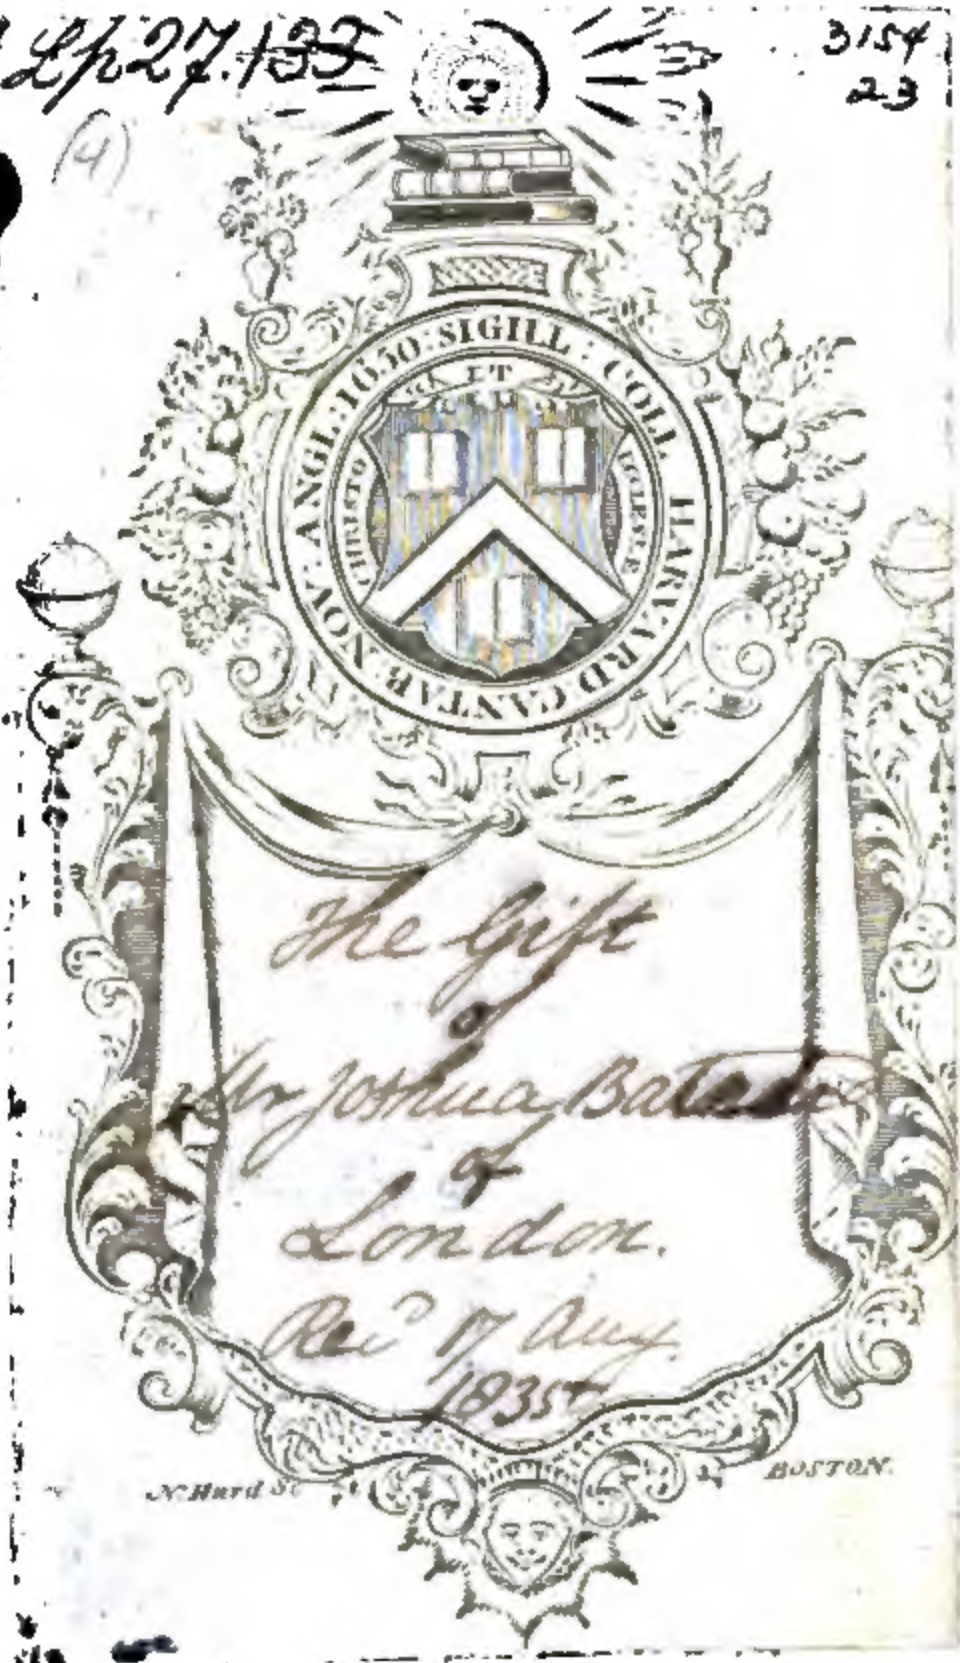 Lp 27.133
3154
23
(4)
SIGILL: COLL HARVARD CANTAB: NOV: ANGL: 1650:
ET
CHRISTO
ECCLESIÆ
The Gift
of
Mr Joshua
of
London.
Rec'd 17 Aug.
1835
N. Hurd Sc
BOSTON.